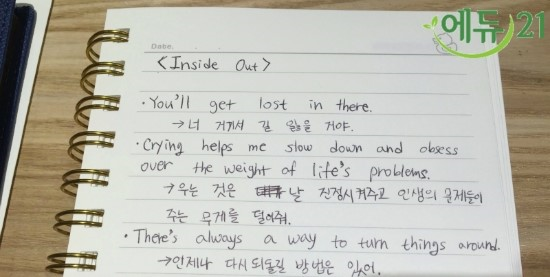 에듀21
Date.
<Inside Out>
· You'll get lost in there.
→ 너 거기서 길 잃을 거야.
· Crying helps me slow down and obsess
over the weight of life's problems.
→ 우는 것은 날 진정시켜주고 인생의 문제들이
주는 무게를 덜어줘.
· There's always a way to turn things around.
→ 언제나 다시 되돌릴 방법은 있어.